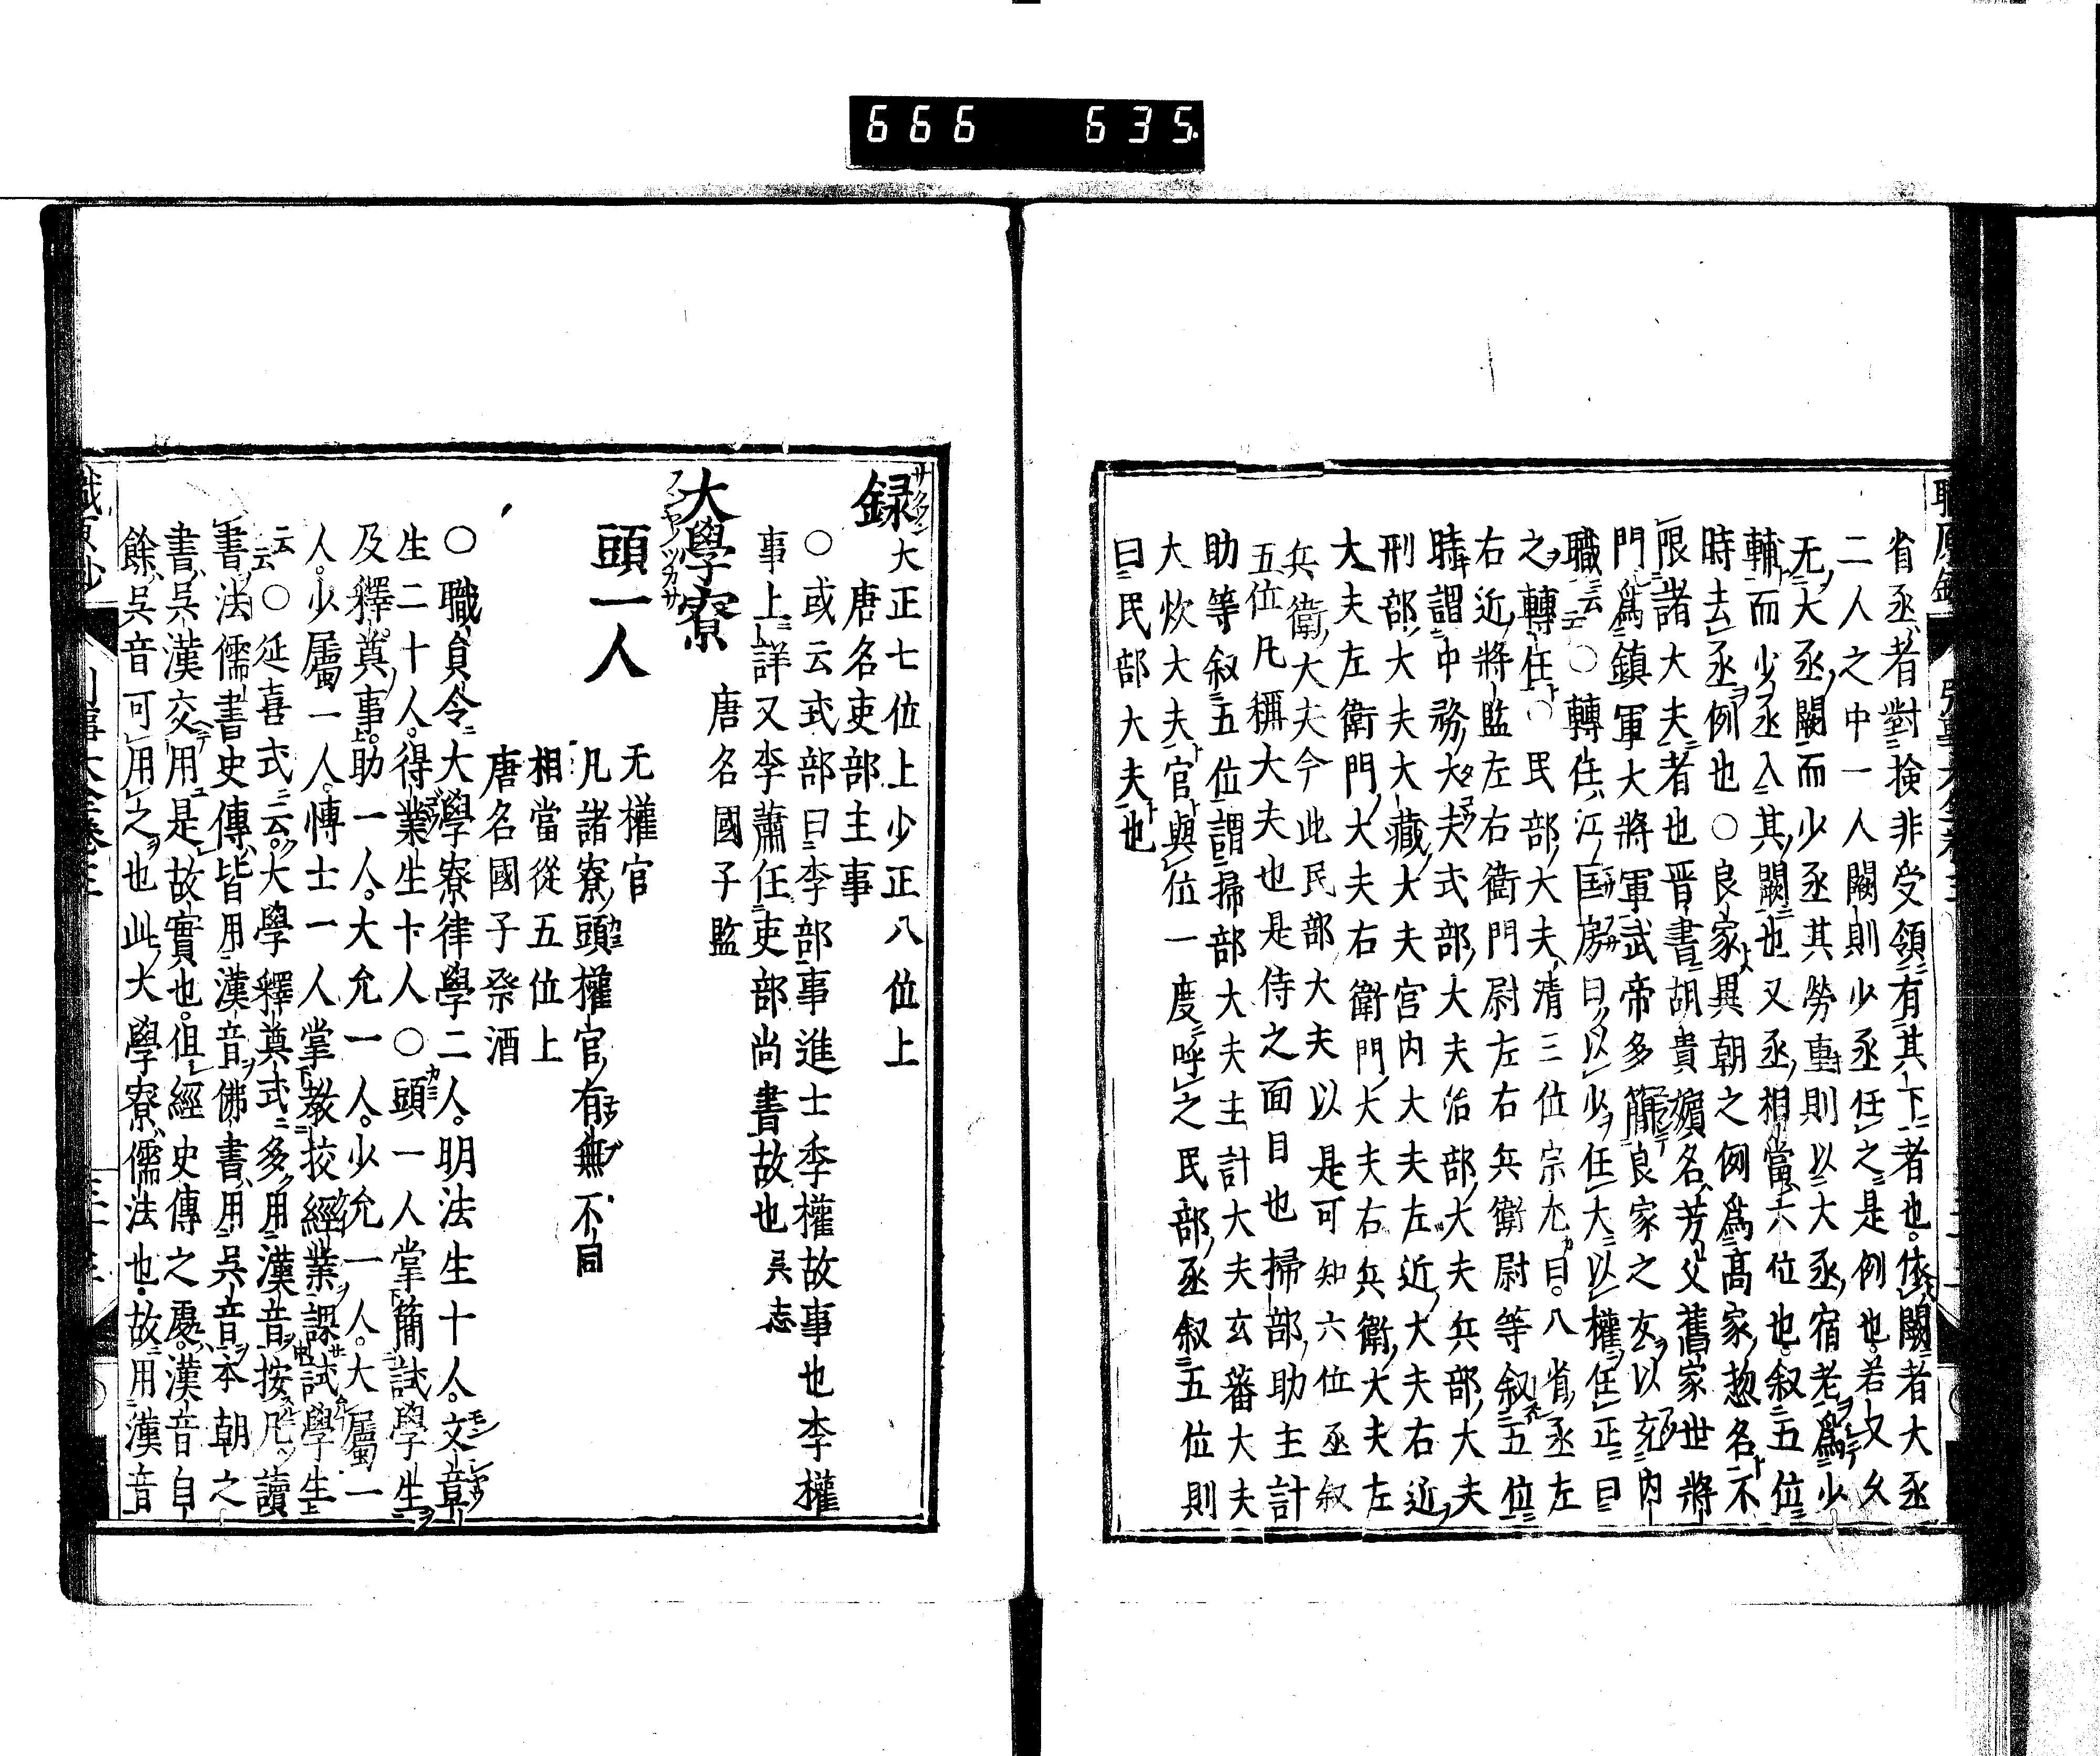 666 635
省丞者對検非受領有其下者也依闕者大丞
二人之中一人闕則少丞任之是例也若又久
无大丞闕而少丞其勞重則以大丞宿老爲少
輔而少丞入其闕也又丞相當六位也叙五位
時去丞例也○良家異朝之例爲髙家惣名不
限諸大夫者也晋書胡貴嬪名芳父舊家世將
門爲鎮軍大將軍武帝多簡良家之女以充内
職云云○轉任江匡房曰以少任大以權任正曰
之轉任○民部大夫清三位宗尤曰八省丞左
右近將監左右衛門尉左右兵衛尉等叙五位
時謂中務大夫式部大夫治部大夫兵部大夫
刑部大夫大藏大夫宮内大夫左近大夫右近
大夫左衛門大夫右衛門大夫右兵衛大夫左
兵衛大夫今此民部大夫以是可知六位丞叙
五位凡稱大夫也是侍之面目也掃部助主計
助等叙五位謂掃部大夫主計大夫玄蕃大夫
大炊大夫官與位一度呼之民部丞叙五位則
曰民部大夫也
録 大正七位上少正八位上
唐名吏部主事
○或云式部曰李部事進士李權故事也李權
事上詳又李蕭任吏部尚書故也 吳志
大學寮 唐名國子監
頭一人
无權官
凡諸寮頭權官有無不同
相當從五位上
唐名國子祭酒
○職貟令大學寮律學二人明法生十人文章
生二十人得業生十人○頭一人掌簡試學生
及釋奠事助一人大允一人少允一人大屬一
人少屬一人博士一人掌教授經業課試學生
云云○延喜式云大學釋奠式多用漢音按凡讀
書法儒書史傳皆用漢音佛書用吳音本朝之
書吳漢交用是故實也但經史傳之處漢音自
餘吳音可用之也此大學寮儒法也故用漢音